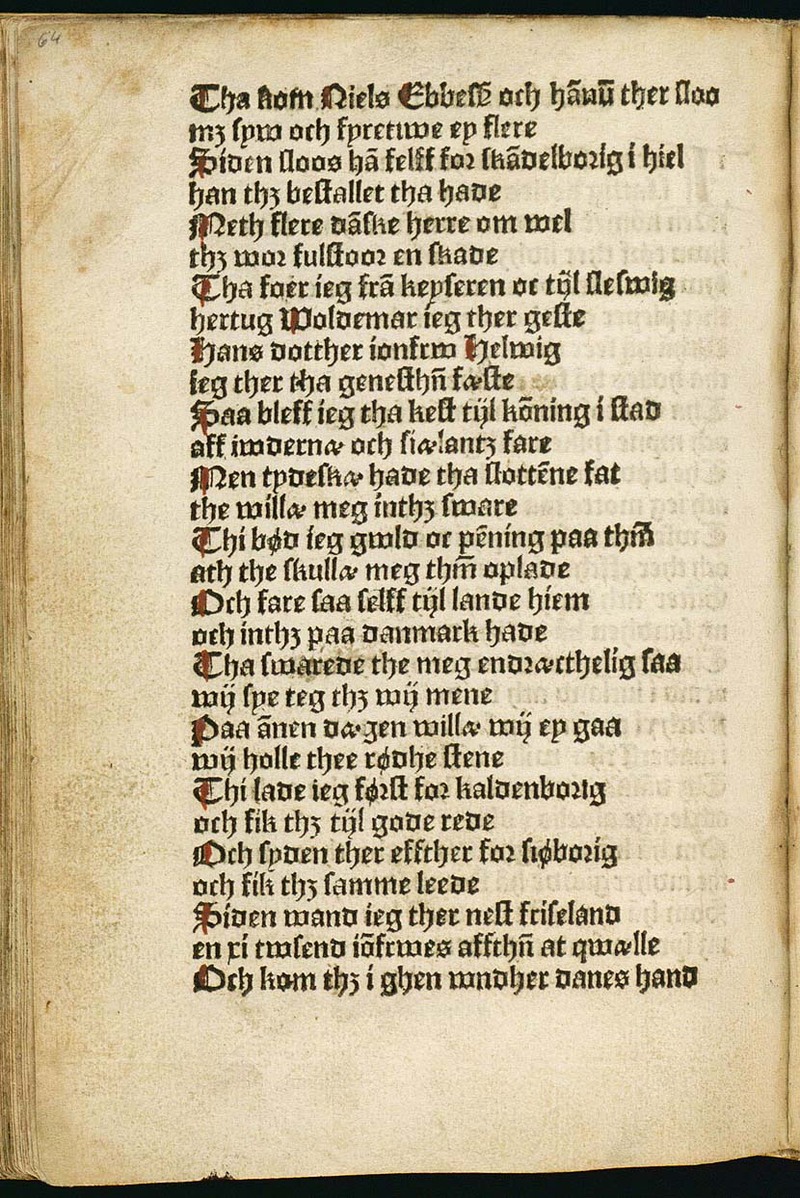 64
Tha kom Niels Ebbeſẽ och hãnũ ther ſloo
mꝫ ſyw och fyretiwe ey flere
Siden ſloos hã ſelff for ſkãdelborig i hiel
han thꝫ beſtallet tha hade
Meth flere dãſke herre om wel
thꝫ wor fulſtoor en ſkade
Tha foer ieg frã keyſeren oc tijl ſleſwig
hertug Woldemar ieg ther geſte
Hans dotther ionfrw Helwig
ieg ther tha geneſthñ fæſte
Saa bleff ieg tha keſt tijl kõning i ſtad
aff iwdernæ och ſiælantꝫ fare
Men tydeſkæ hade tha ſlottẽne fat
the willæ meg inthꝫ ſware
Thi bød ieg gwld oc pẽning paa thm̃
ath the ſkullæ meg thm̃ oplade
Och fare ſaa ſelff tijl lande hiem
och inthꝫ paa danmark hade
Tha ſwarede the meg endꝛæcthelig ſaa
wij ſye teg thꝫ wij mene
Paa ãnen dægen willæ wij ey gaa
wij holle thee rødhe ſtene
Thi lade ieg føꝛſt foꝛ kaldenboꝛig
och fik thꝫ tijl gode rede
Och ſyden ther effther foꝛ ſiøboꝛig
och fik thꝫ ſamme leede
Siden wand ieg ther neſt friſeland
en xi twſend iõfrwes affthñ at qwælle
Och kom thꝫ i ghen wndher danes hand